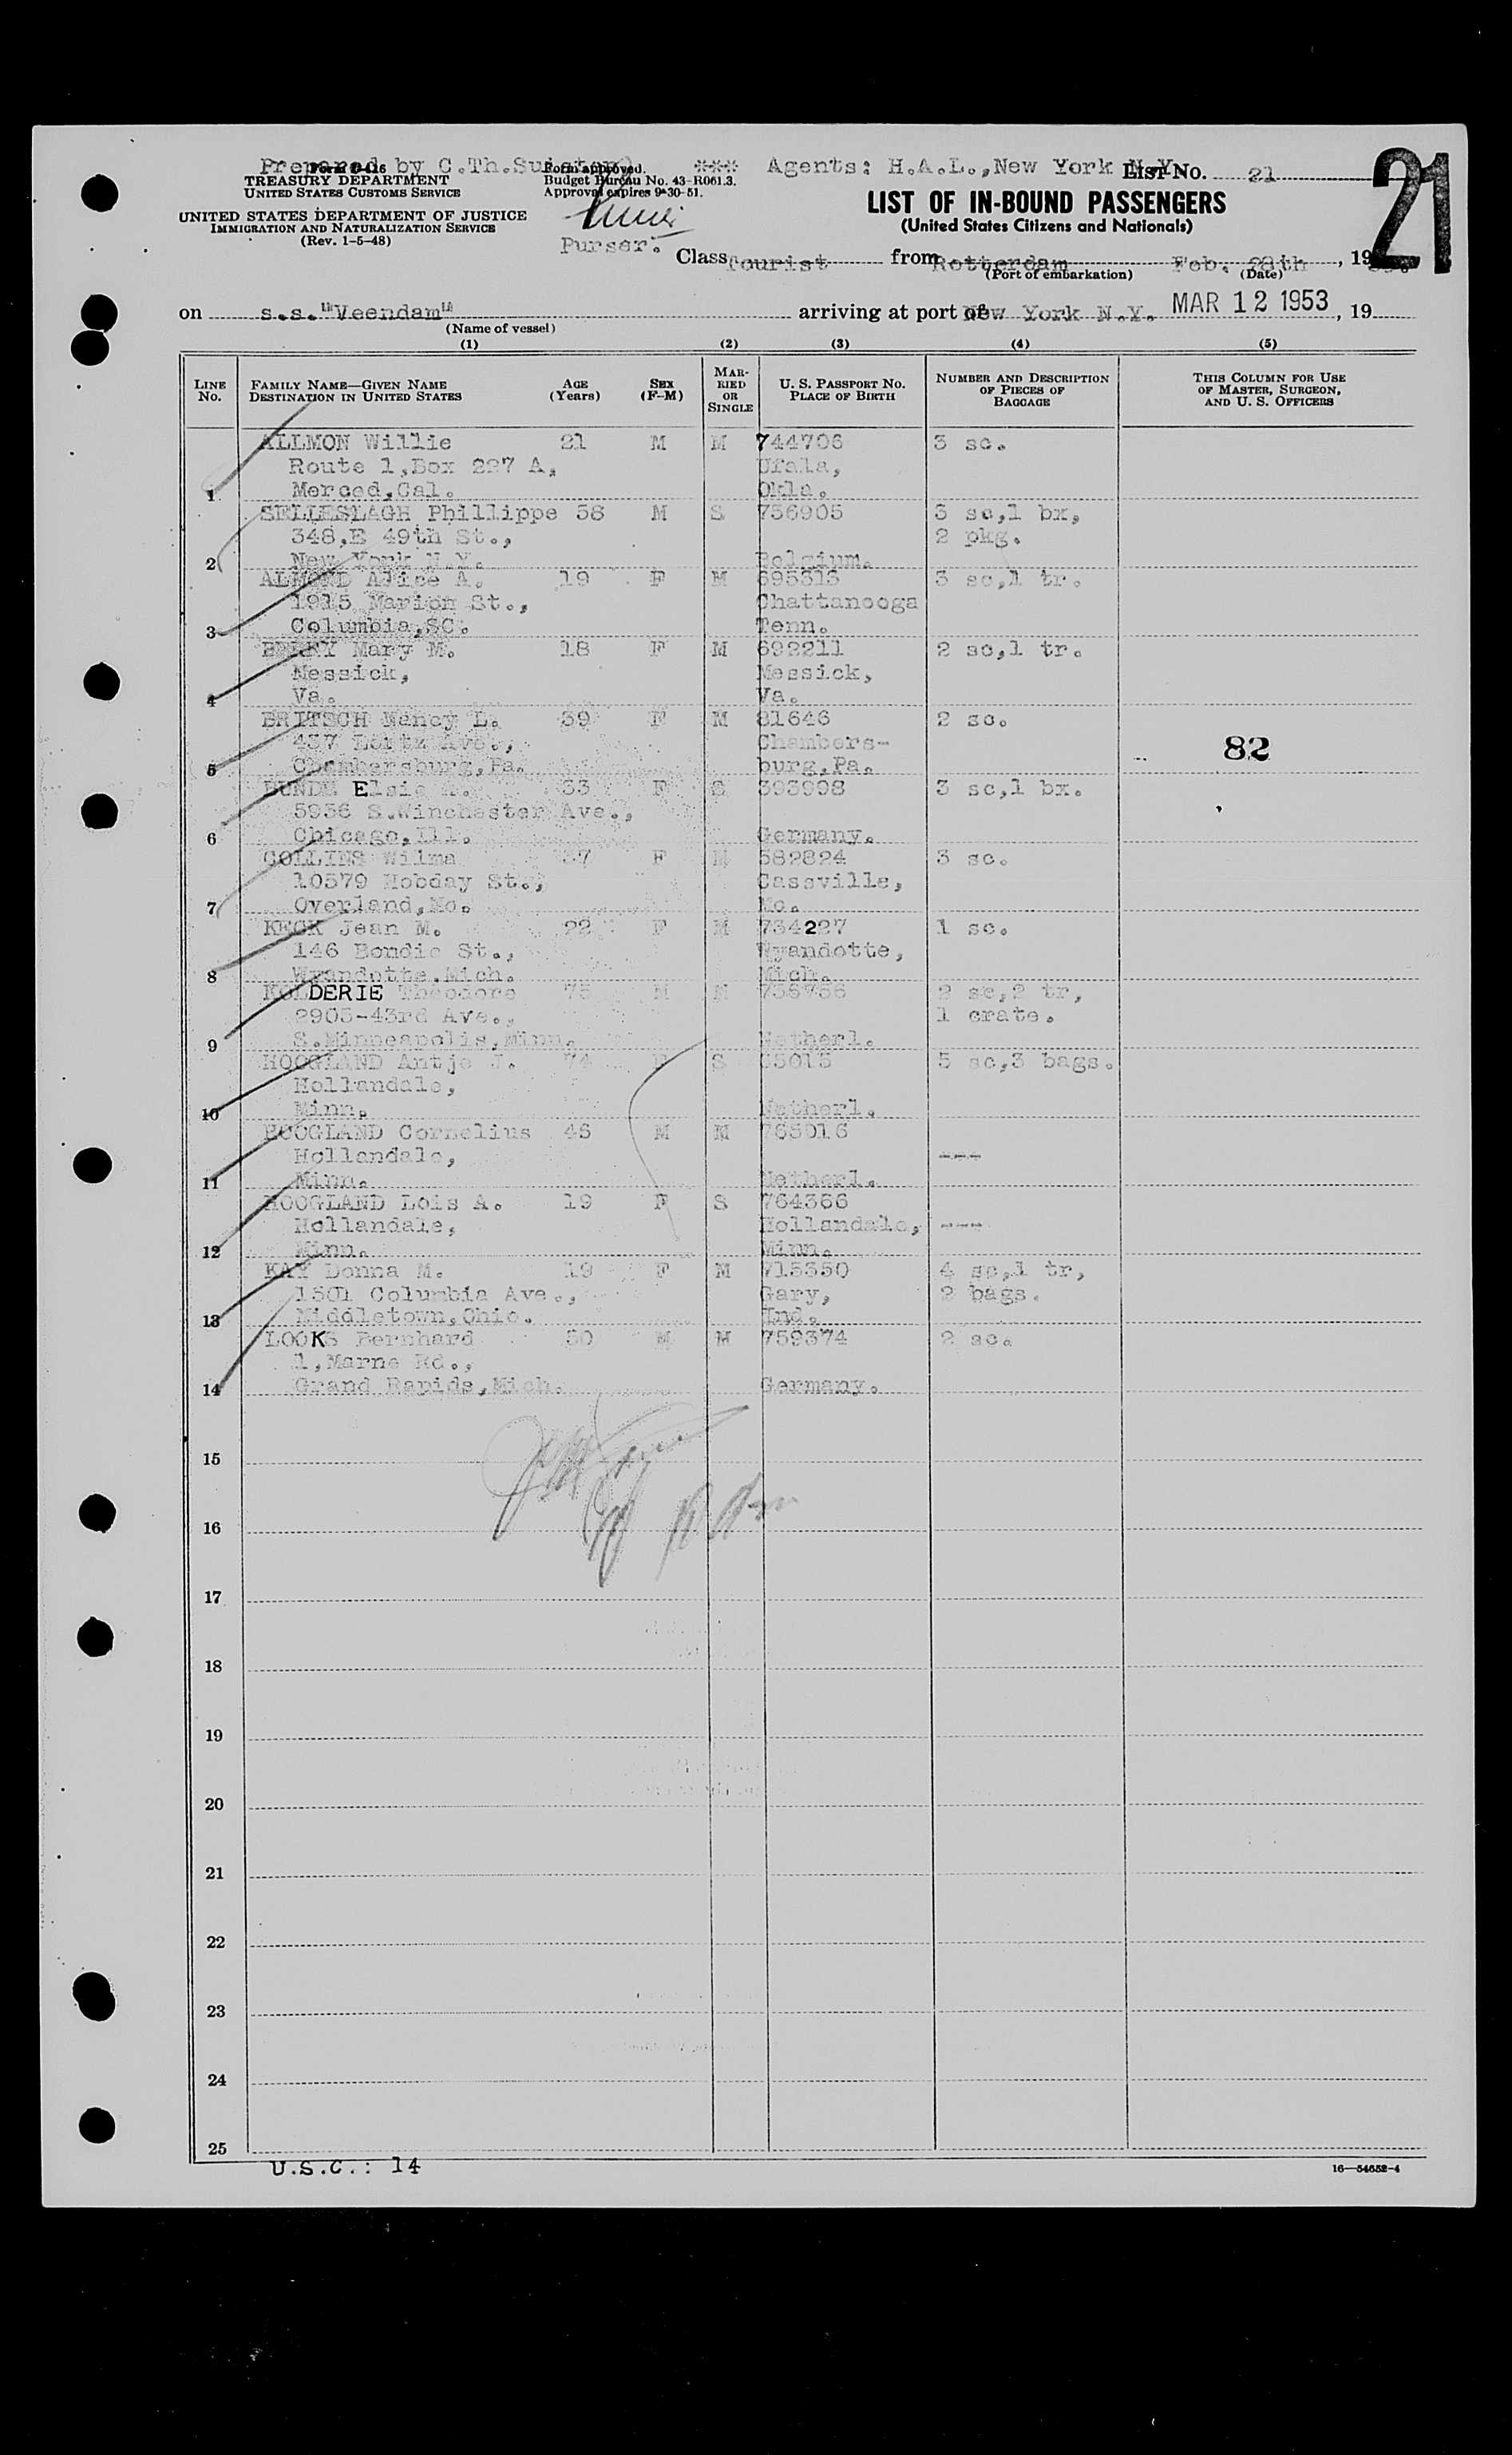 Prepared by C.Th. *** Agents: H.A.L.,New York N.Y. List No. 21
21
Form I-416
TREASURY DEPARTMENT
UNITED STATES CUSTOMS SERVICE
UNITED STATES DEPARTMENT OF JUSTICE
IMMIGRATION AND NATURALIZATION SERVICE
(Rev. 1-5-48)
Form approved.
Budget Bureau No. 43-R061.3.
Approval expires 9-30-51.
Purser.
LIST OF IN-BOUND PASSENGERS
(United States Citizens and Nationals)
Class Tourist from Rotterdam Feb. 28th, 19
(Port of embarkation) (Date)
on s.s."Veendam" arriving at port of New York N.Y. MAR 12 1953, 19
(Name of vessel)
(1) (2) (3) (4) (5)
LINE No. FAMILY NAME—GIVEN NAME DESTINATION IN UNITED STATES AGE (Years) SEX (F-M) MARRIED OR SINGLE U. S. PASSPORT NO. PLACE OF BIRTH NUMBER AND DESCRIPTION OF PIECES OF BAGGAGE THIS COLUMN FOR USE OF MASTER, SURGEON, AND U. S. OFFICERS
ALLMON Willie 21 M M 744706 3 sc.
Route 1,Box 227 A, Ufala,
1 Merced,Cal. Okla.
SELLESLAGH Phillippe 58 M S 756905 3 sc,1 bx,
348,E 49th St., 2 pkg.
2 New York N.Y. Belgium.
ALMOND Alice A. 19 F M 695313 3 sc,1 tr.
1915 Marion St., Chattanooga
3 Columbia,SC. Tenn.
Mary M. 18 F M 692211 2 sc,1 tr.
Messick, Messick,
4 Va. Va.
BRITSCH Nancy L. 39 F M 81646 2 sc.
437 Ave., Chambers-
5 Chambersburg,Pa. burg,Pa.
82
Elsie 33 F S 393998 3 sc,1 bx.
5936 S.Winchester Ave.,
6 Chicago,Ill. Germany.
COLLINS Wilma F M 582824 3 sc.
10579 Hobday St., Cassville,
7 Overland,Mo. Mo.
KECK Jean M. 22 F M 734227 1 sc.
146 Bondie St., Wyandotte,
8 Wyandotte,Mich. Mich.
KOLDERIE Theodore 75 M M 2 sc,2 tr,
2905-43rd Ave., 1 crate.
9 S.Minneapolis,Minn. Netherl.
HOOGLAND Antje J. 74 F S 5 sc,3 bags.
Hollandale,
10 Minn. Netherl.
HOOGLAND Cornelius 46 M M 765016
Hollandale, ---
11 Minn. Netherl.
HOOGLAND Lois A. 19 F S 764366
Hollandale, Hollandale, ---
12 Minn. Minn.
KAY Donna M. 19 F M 715350 4 sc,1 tr,
1501 Columbia Ave., Gary, 2 bags.
13 Middletown,Ohio. Ind.
LOOKS Bernhard 50 M M 759374 2 sc.
1,Marne Rd.,
14 Grand Rapids,Mich. Germany.
15
16
17
18
19
20
21
22
23
24
25
U.S.C.: 14
16—54652-4